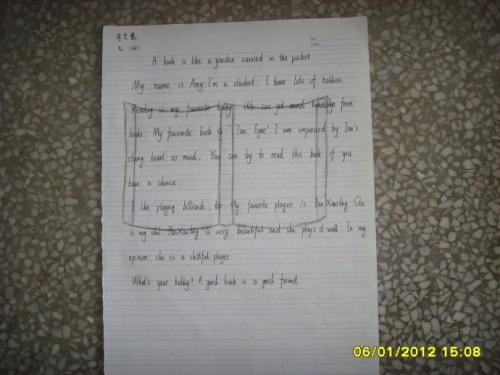 A book is like a garden carried in the pocket
My name is Amy. I'm a student. I have lots of hobbies.
Reading is my favourite hobby. We can get much from
books. My favourite book is "Jan Eyre". I am impressed by Jan's
strong heart so much. You can try to read this book if you
have a chance.
I like playing billiards, My favorite player is Pan Xiaoting. She
is my idol. Pan Xiaoting is very beautiful and she plays it well. In my
opinion, she is a skillful player.
What's your hobby? A good book is a good friend.
06/01/2012 15:08